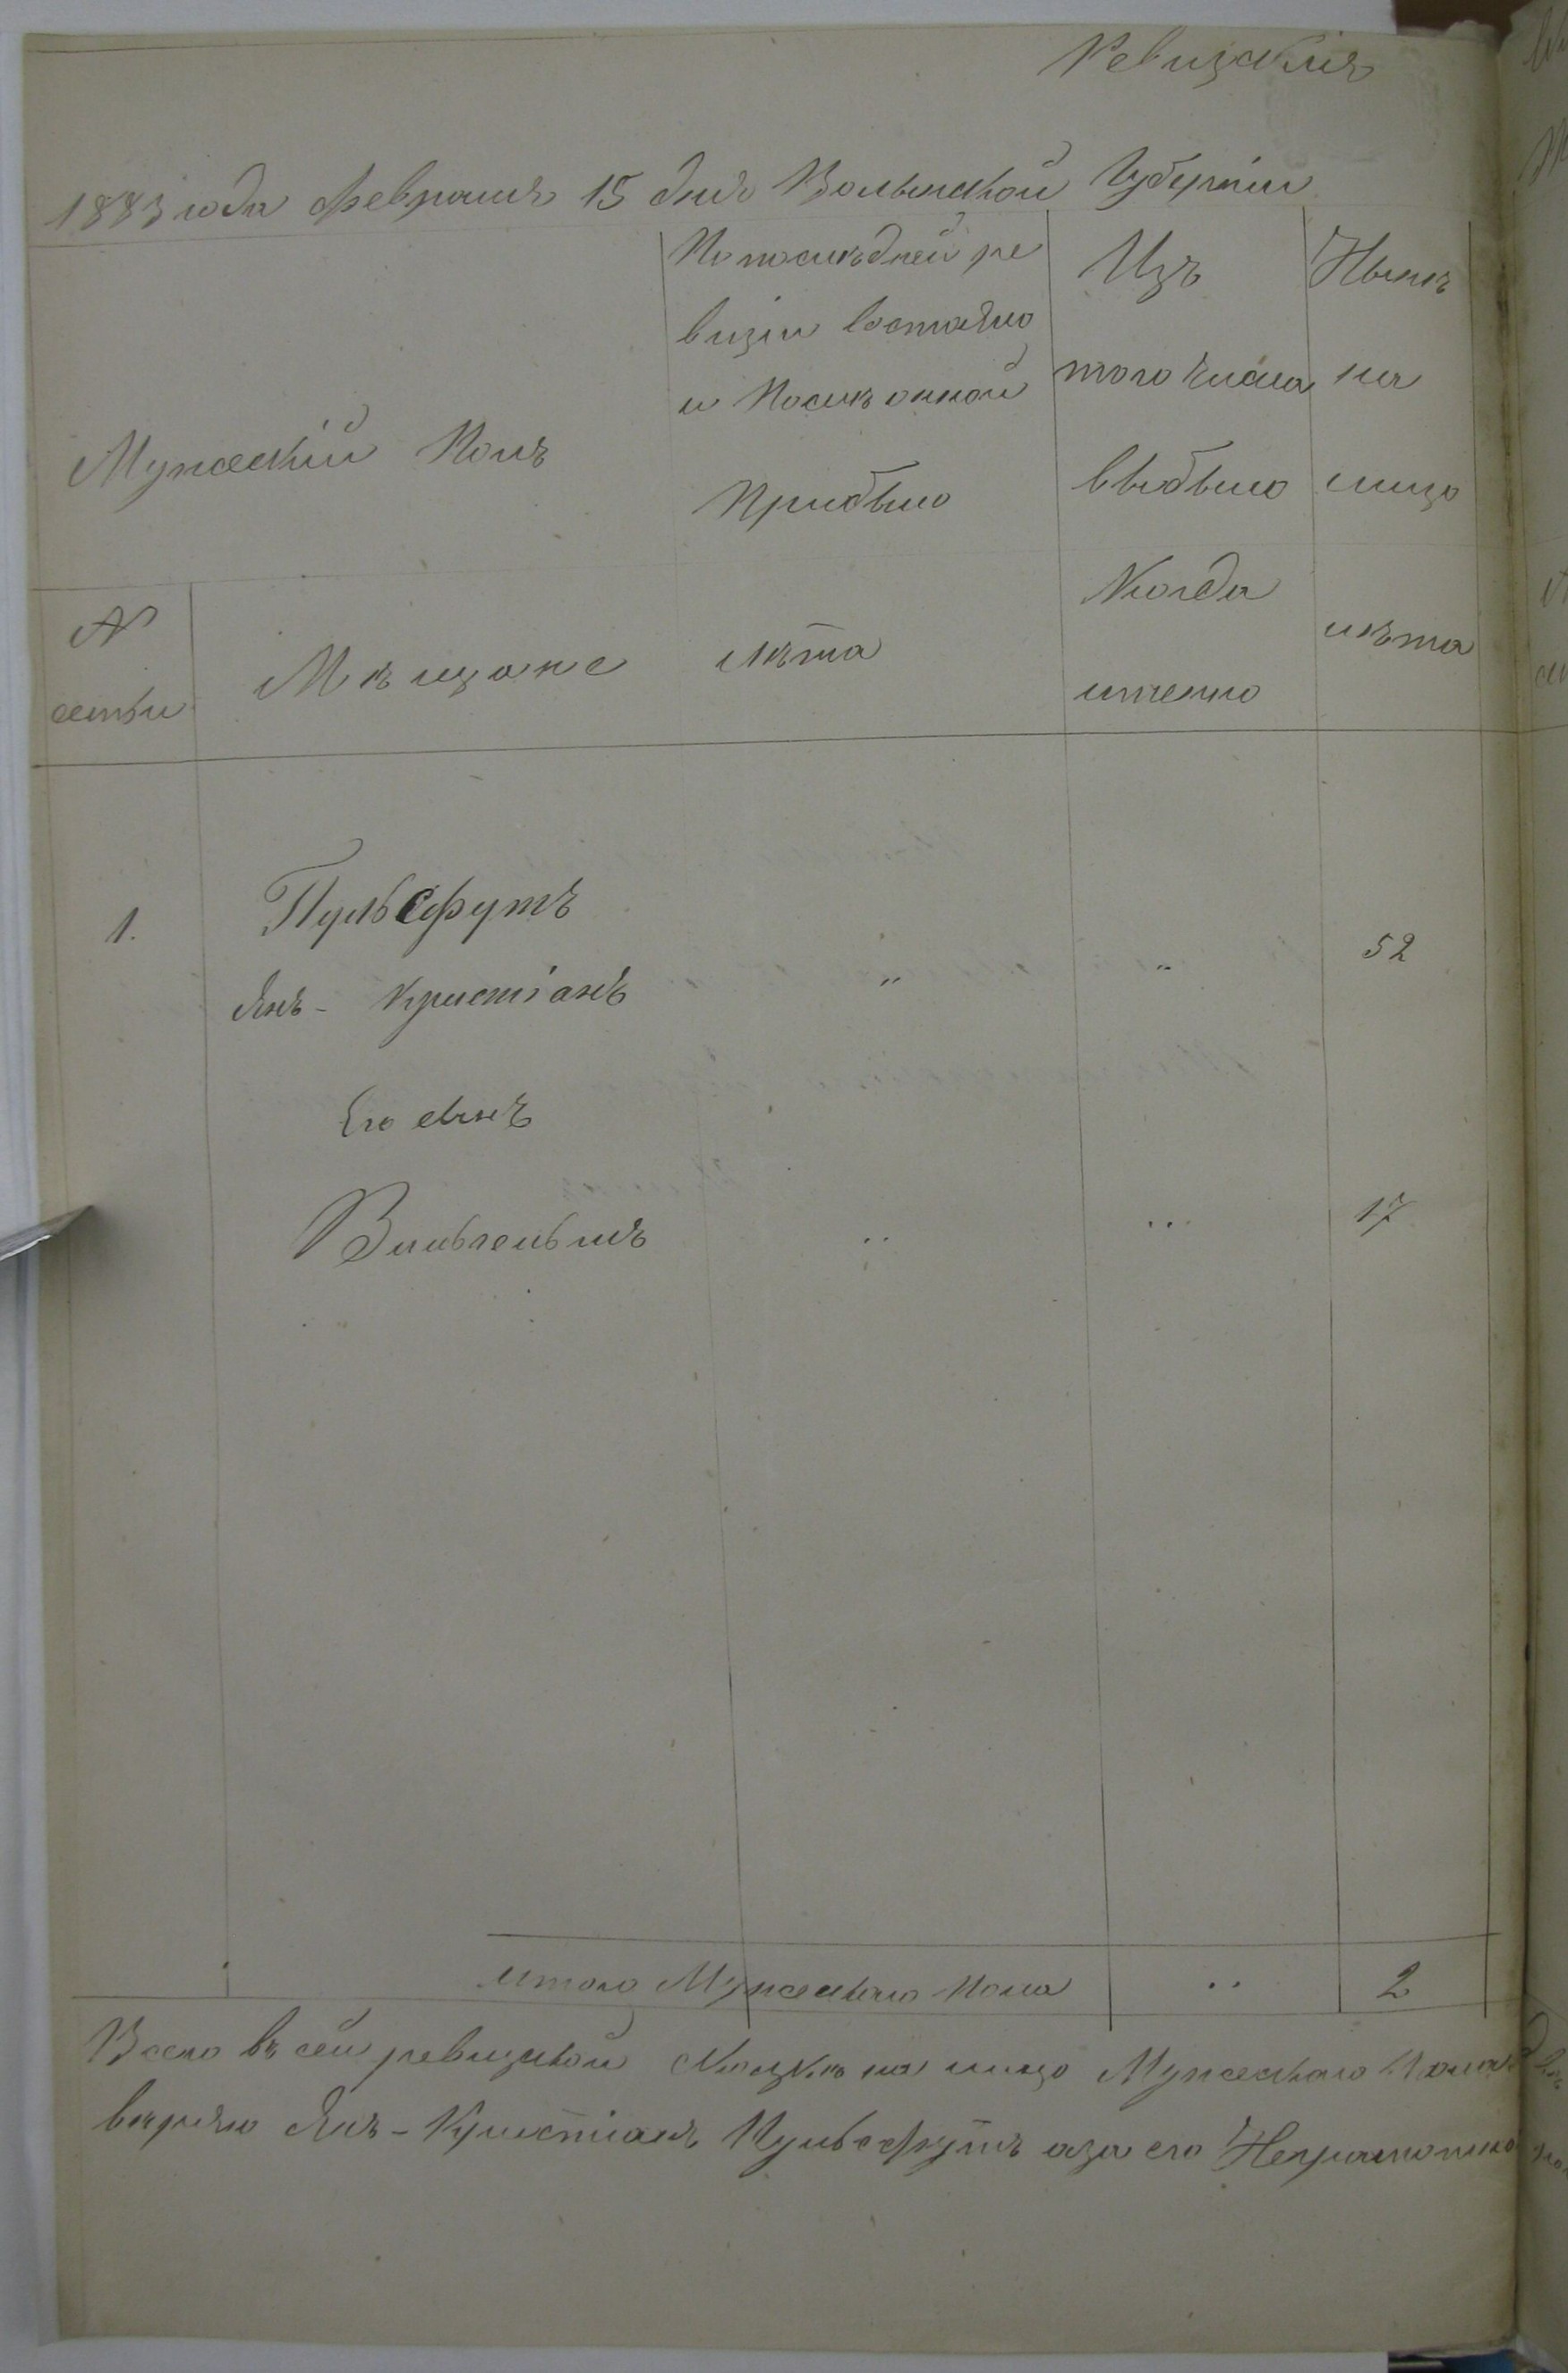 Ревизская
1883 года февраля 15 дня Волынской Губернiи
Мужескiй Полъ
По последней ре
визiи состояло
и После онной
Прибыло
Изъ
того числа
выбыло
Ныне
на
лицо
№
семьи
Мѣщане
лѣта
Когда
именно
лѣта
1.
Пульсфутъ
Янъ - Кристiанъ
"
"
52
Его сынъ
Вильгельмъ
"
"
17
итого Мужескаго Пола
"
2
Всего въ сей ревизской на лицо Мужескаго Пола
Янъ - Кристiанъ Пульсфутъ аза его